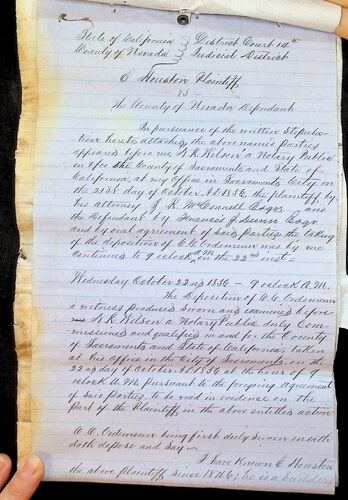 State of California } District Court 14th
County of Nevada } Judicial District
E Houston Plaintiff
vs
The County of Nevada Defendant
In pursuance of the written Stipula-
tion hereto attached, the above named parties
appeared before me, A. R. Wilson a Notary Public
in & for the County of Sacramento and State of
California, at my Office in Sacramento City, on
the 21st day of October A.D. 1856, the plaintiff, by
his attorney J. R. McConnell Esqr. and
the Defendant by Francis J. Dunn Esqr.
and by oral agreement of said Parties the taking
of the deposition of was by me
continued to 9 o'clock A.M. on the 22nd inst
Wednesday October 22nd 1856 – 9 o'clock A.M.
The Deposition of
a witness produced sworn and examined before
A. R. Wilson a Notary Public, duly Com-
missioned and qualified in and for the County
of Sacramento and State of California, taken
at his Office in the City of Sacramento on the
22nd day of October A.D. 1856 at the hour of 9
o'clock A.M. pursuant to the foregoing Agreement
of said Parties, to be read in evidence on the
part of the Plaintiff in the above entitled action
being first duly sworn on oath
doth depose and say –
I have known E Houston
the above Plaintiff since 1846; he is a builder